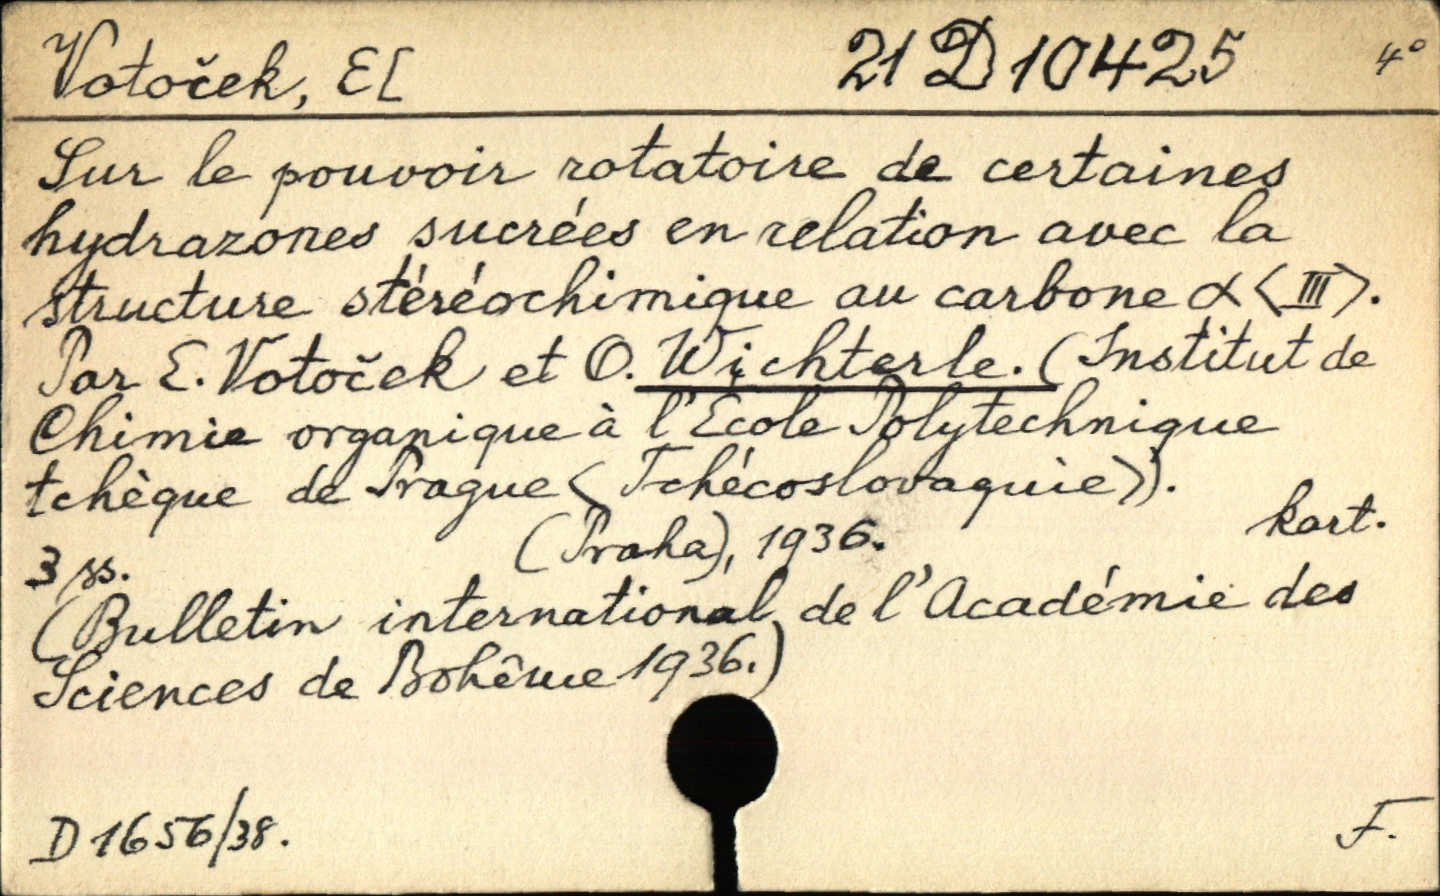 Votoček, E[ 21 D 10425 4°
Sur le pouvoir rotatoire de certaines
hydrazones sucrées en relation avec la
structure stéréochimique au carbone α <III>.
Par E. Votoček et O. Wichterle. (Institut de
Chimie organique à l'Ecole Polytechnique
tchèque de Prague <Tchécoslovaquie>).
(Praha), 1936. kart.
3 ss.
(Bulletin international de l'Académie des
Sciences de Bohême 1936.)
D 1656/38. F.